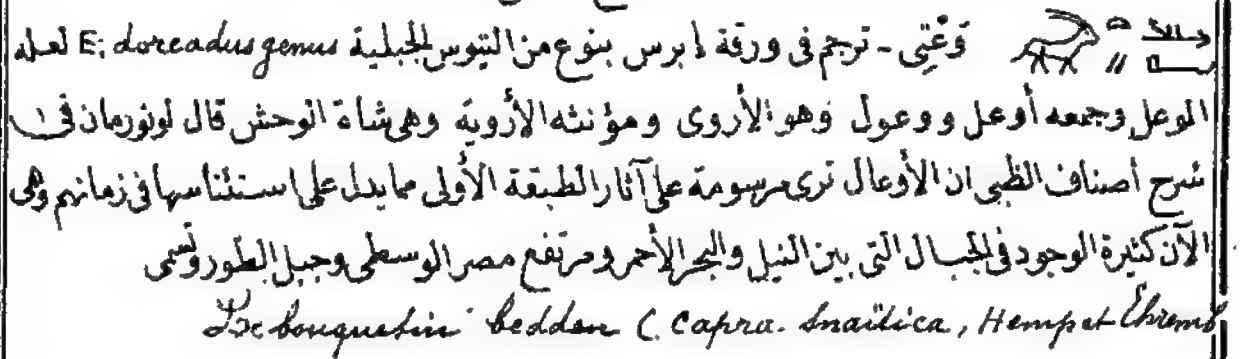 قعْتِى - ترجم فى ورقة إبرس بنوع من التيوس الجبلية E; doreadus genus لعله
الوعل وجمعه أوعل ووعول وهو الأروى ومؤنثه الأرْوية وهى شاة الوحش قال لونورمان فى
شرح أصناف الظبى ان الأوعال ترى مرسومة على آثار الطبقة الأولى مما يدل على استئناسها فى زمانهم وهى
الآن كثيرة الوجود فى الجبال التى بين النيل والبحر الأحمر ومرتفع مصر الوسطى وجبل الطور وتسمى
bouquetin bedden (Capra. Snaïtica, Hemp et Ehremb